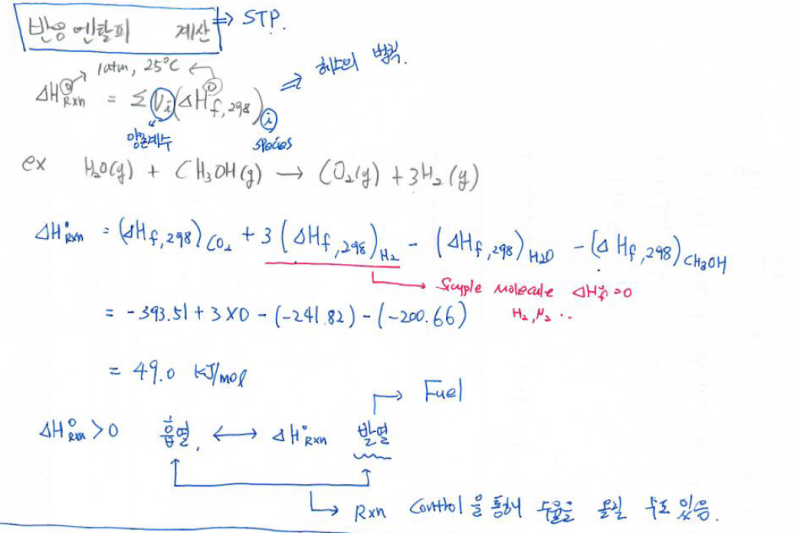 반응 엔탈피 계산 ⇒ STP.
1atm, 25°C
ΔH°Rxn = Σ νi(ΔH°f,298)i ⇒ 헤스의 법칙.
양론계수 species
ex H2O(g) + CH3OH(g) → CO2(g) + 3H2(g)
ΔH°Rxn = (ΔHf,298)CO2 + 3(ΔHf,298)H2 - (ΔHf,298)H2O - (ΔHf,298)CH3OH
→ Simple molecule ΔH°f=0
H2, N2 ..
= -393.51 + 3×0 - (-241.82) - (-200.66)
= 49.0 KJ/mol
→ Fuel
ΔH°Rxn > 0 흡열, ↔ ΔH°Rxn 발열
→ Rxn Control을 통해 올릴 수도 있음.